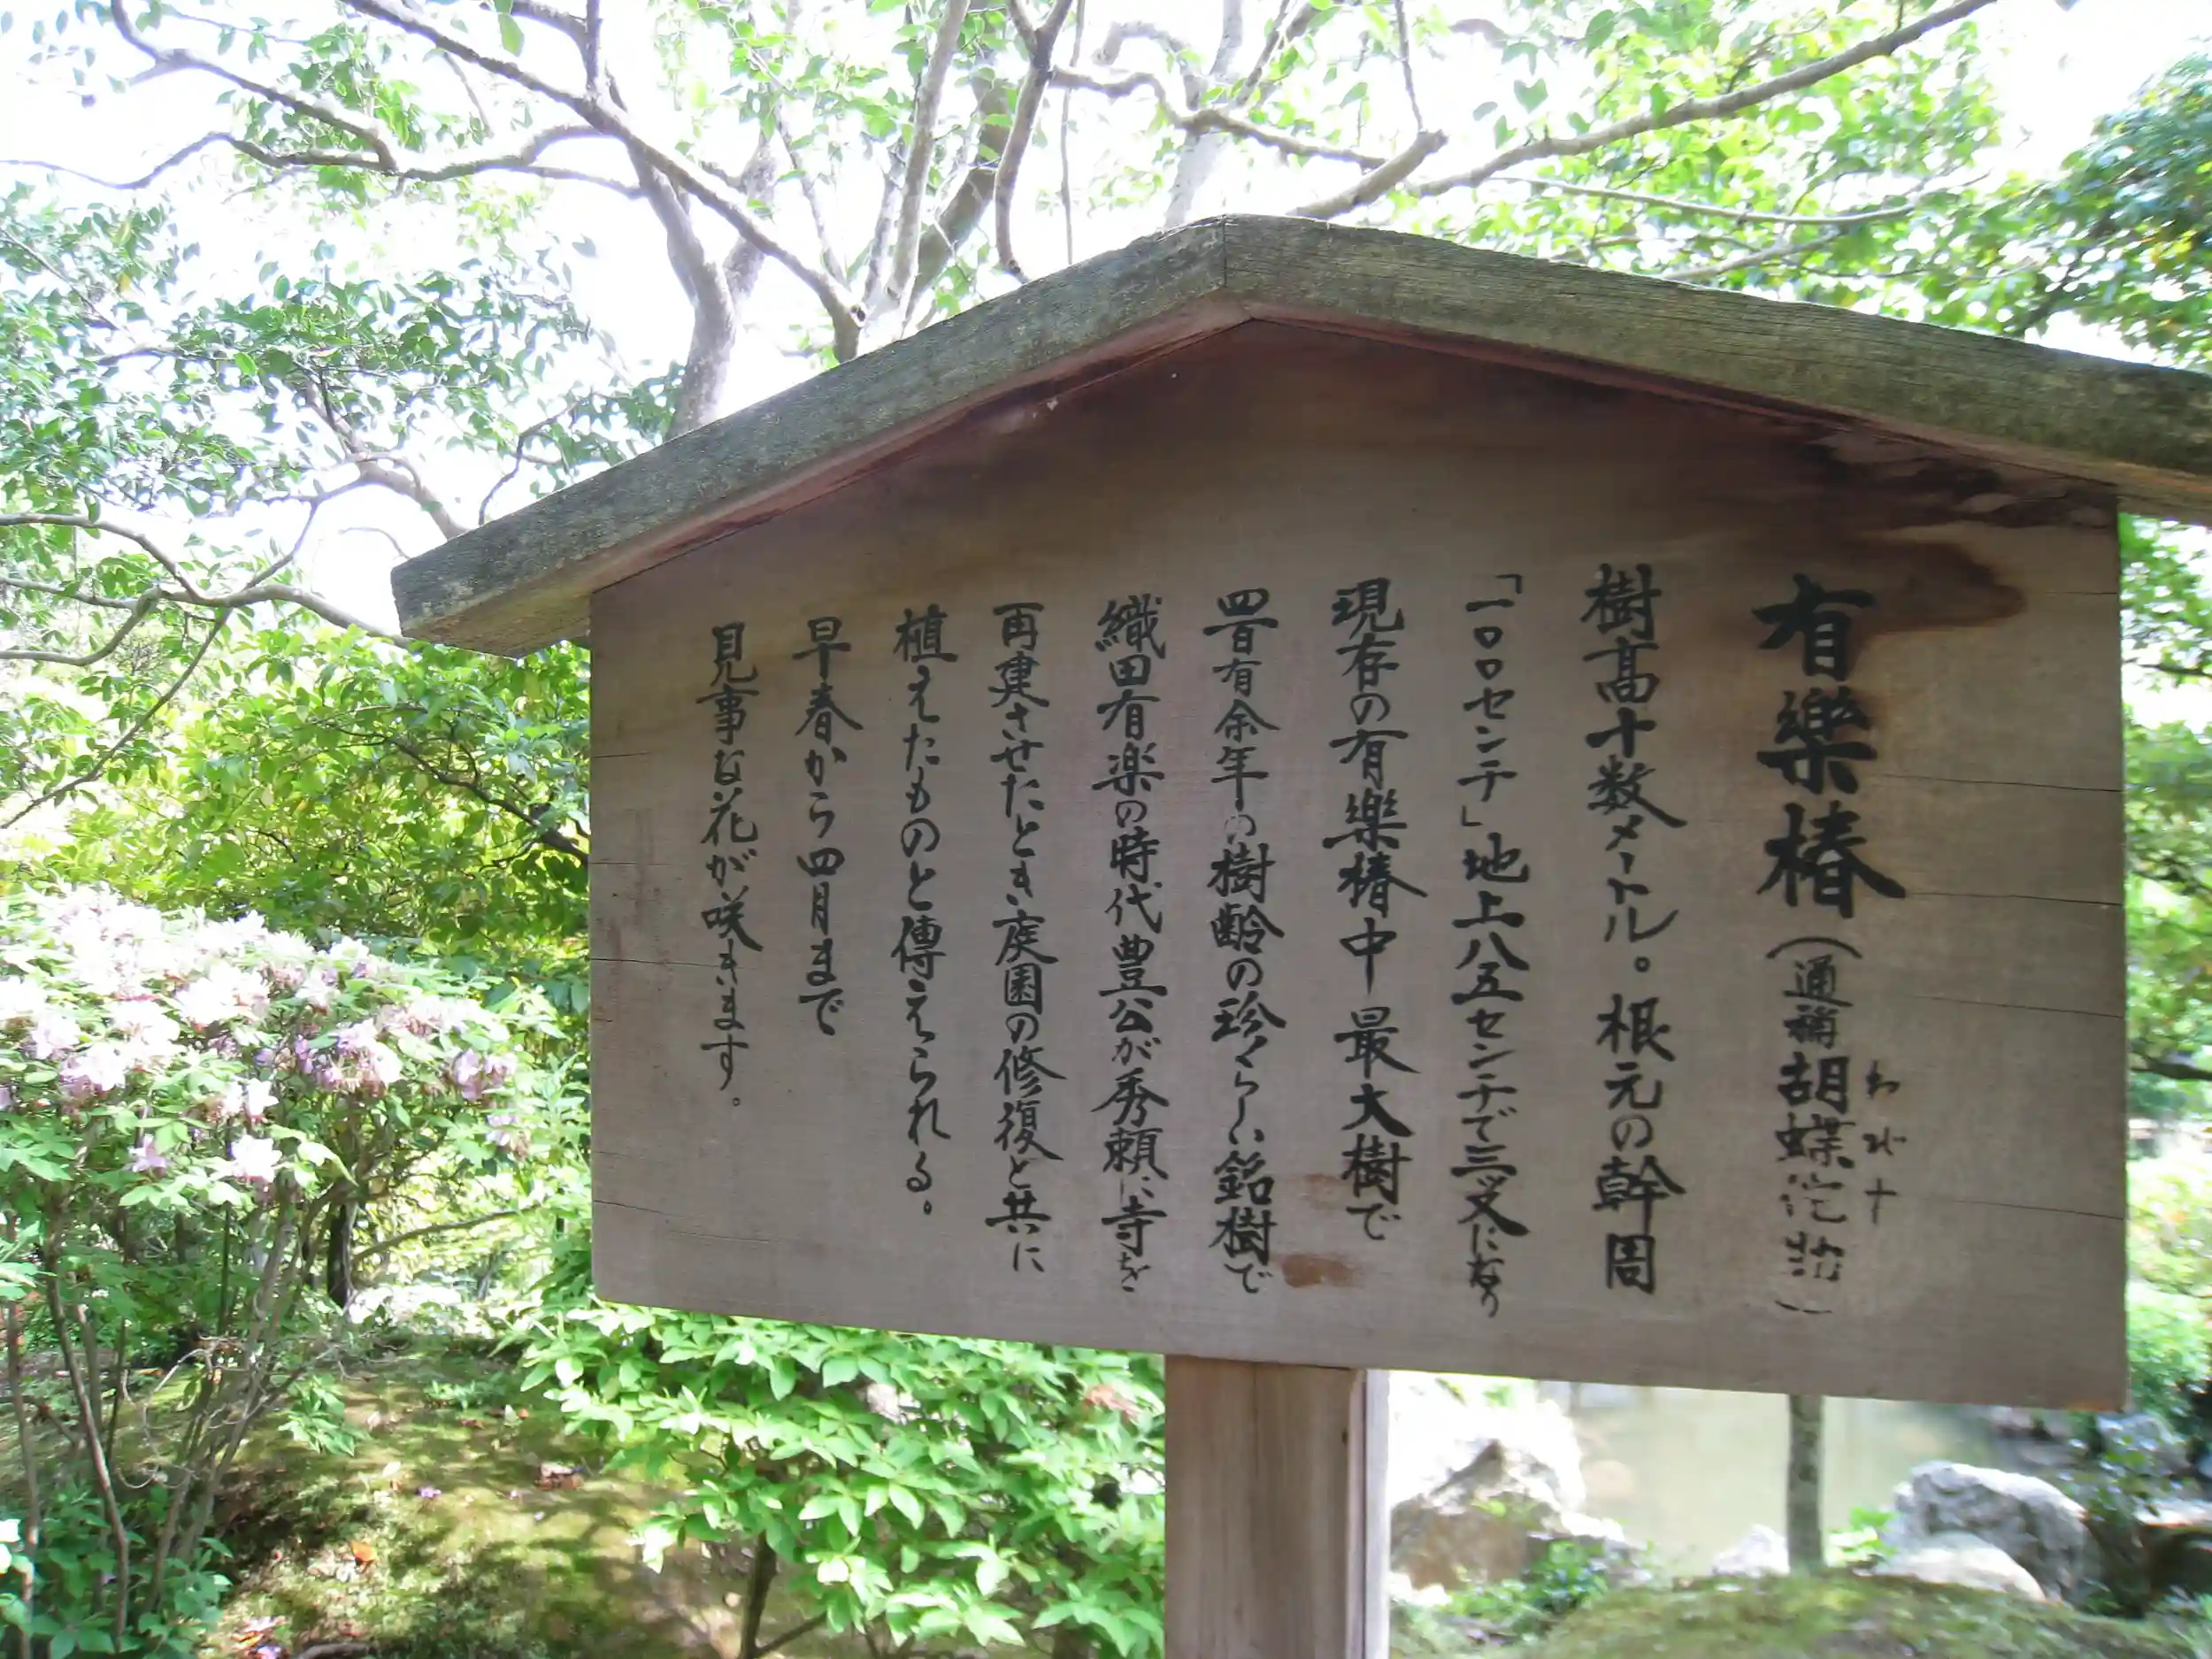 有樂椿(通稱胡蝶侘
樹高十数メートル。根元の幹周
「一〇〇センチ」地上八五センチで三叉になり
現存の有樂椿中最大樹で
四百有余年の樹齢の珍らしい銘樹で
織田有楽の時代豊公が秀頼に寺を
再建させたとき庭園の修復と共に
植えたものと傳えられる。
早春から四月まで
見事な花が咲きます。